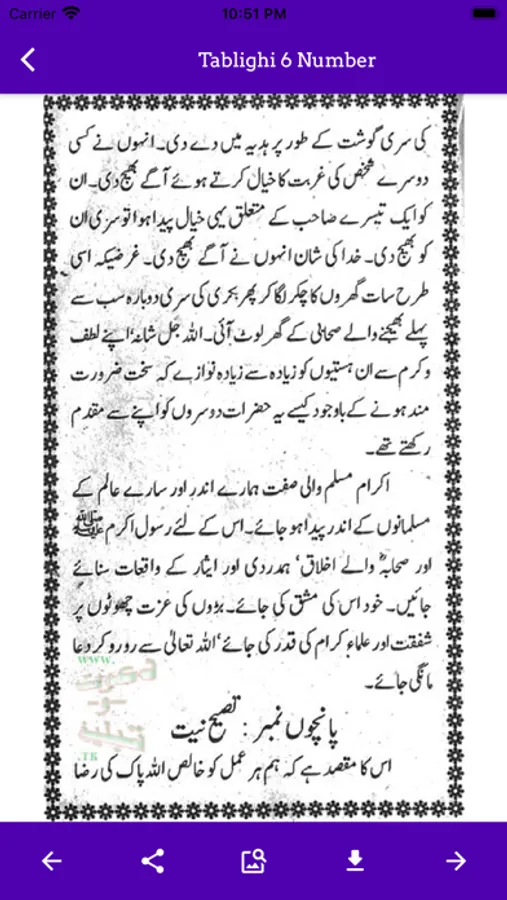 Carrier 10:51 PM
Tablighi 6 Number
کی سری گوشت کے طور پر ہدیہ میں دے دی۔ انہوں نے کسی
دوسرے شخص کی غربت کا خیال کرتے ہوئے آگے بھیج دی۔ ان
کو ایک تیسرے صاحب کے متعلق یہی خیال پیدا ہوا تو سری ان
کو بھیج دی۔ خدا کی شان انہوں نے آگے بھیج دی۔ غرضیکہ اسی
طرح سات گھروں کا چکر لگا کر پھر بکری کی سری دوبارہ سب سے
پہلے بھیجنے والے صحابیؓ کے گھر لوٹ آئی۔ اللہ جل شانہ' اپنے لطف
و کرم سے ان ہستیوں کو زیادہ سے زیادہ نوازے کہ سخت ضرورت
مند ہونے کے باوجود کیسے یہ حضرات دوسروں کو اپنے سے مقدم
رکھتے تھے۔
اکرام مسلم والی صفت ہمارے اندر اور سارے عالم کے
مسلمانوں کے اندر پیدا ہو جائے۔ اس کے لئے رسول اکرم ﷺ
اور صحابہؓ والے اخلاق' ہمدردی اور ایثار کے واقعات سنائے
جائیں۔ خود اس کی مشق کی جائے۔ بڑوں کی عزت چھوٹوں پر
شفقت اور علماءِ کرام کی قدر کی جائے' اللہ تعالیٰ سے رو رو کر دعا
مانگی جائے۔
WWW.
دعوت
و
تبلیغ
.TK
پانچوں نمبر : تصیح نیت
اس کا مقصد ہے کہ ہم ہر عمل کو خالص اللہ پاک کی رضا